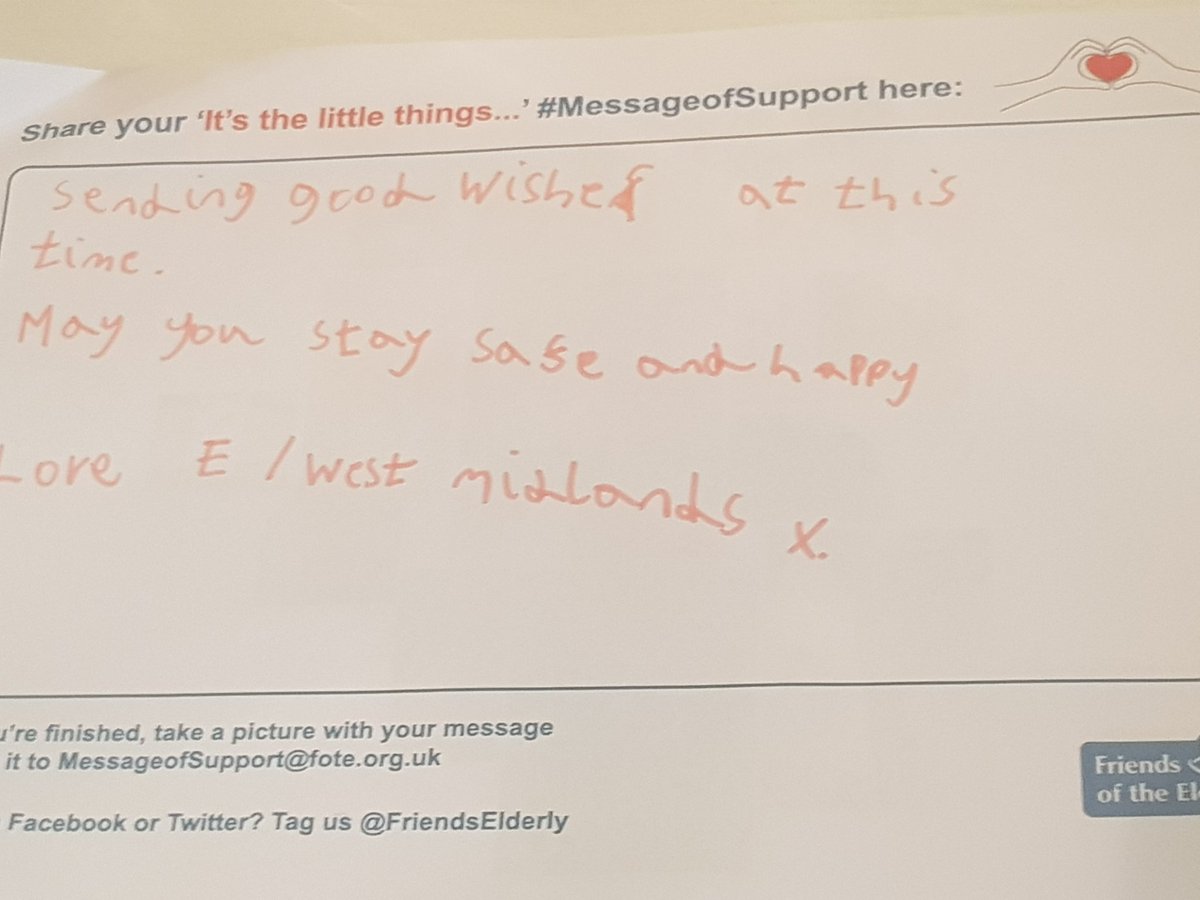 Share your ‘It's the little things...’ #MessageofSupport here:
Sending good wishes at this
time.
May you stay safe and happy
Love E / west midlands x.
u're finished, take a picture with your message
it to MessageofSupport@fote.org.uk
Facebook or Twitter? Tag us @FriendsElderly
Friends
of the El